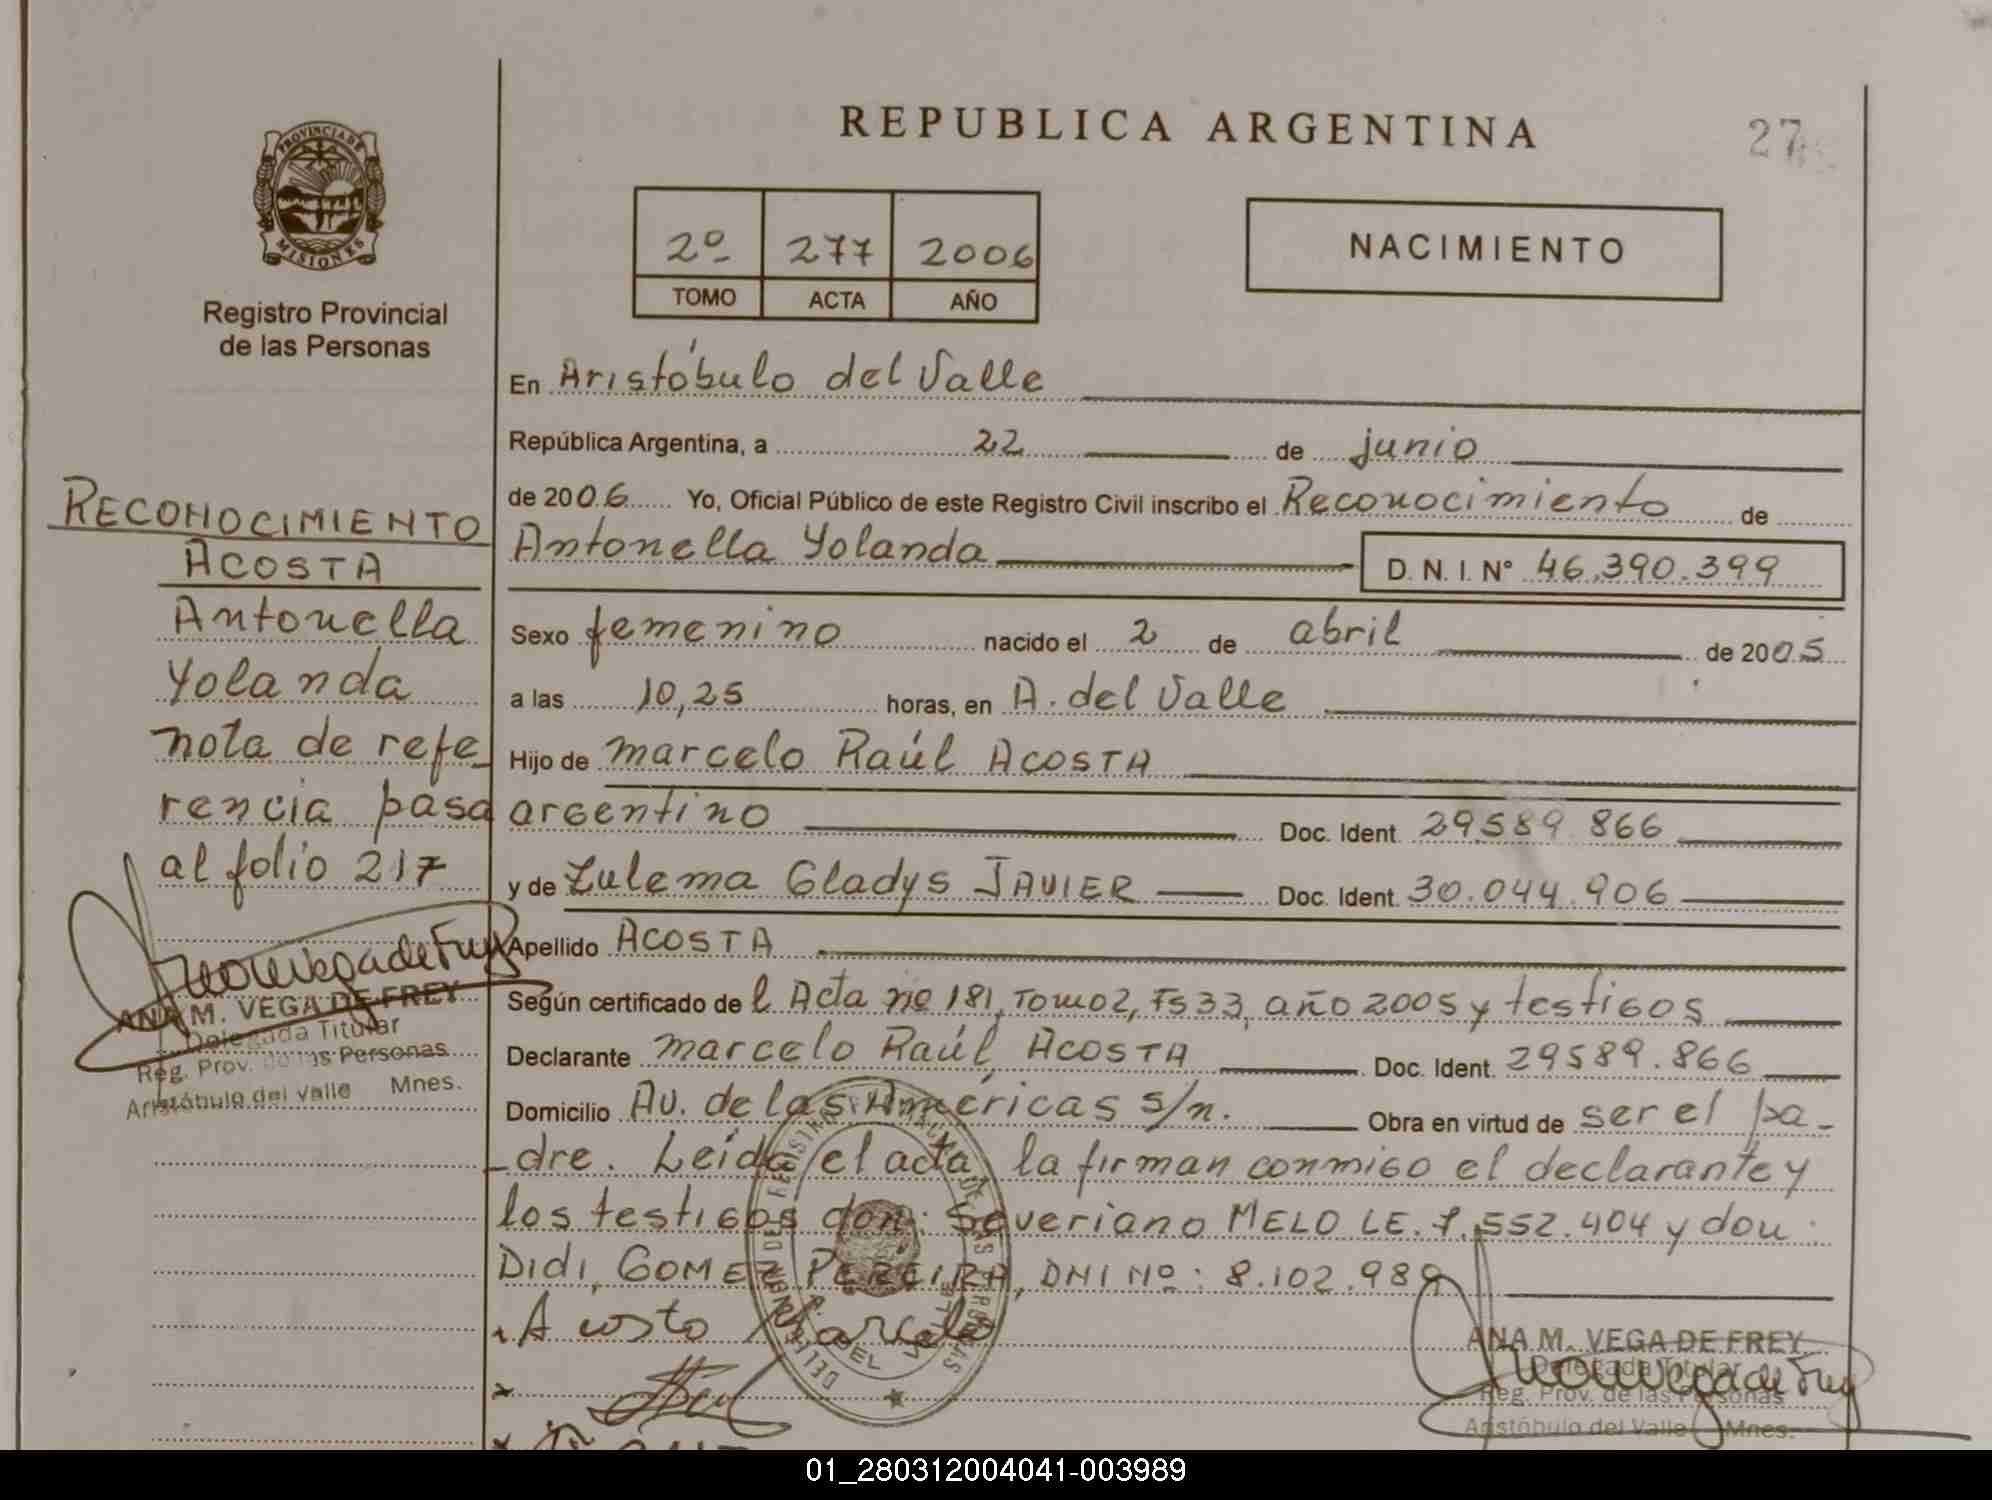 REPUBLICA ARGENTINA
27
PROVINCIA DE
MISIONES
Registro Provincial
de las Personas
2º 277 2006
TOMO ACTA AÑO
NACIMIENTO
RECONOCIMIENTO
ACOSTA
Antonella
Yolanda
nota de refe_
rencia pasa
al folio 217
ANA M. VEGA DE FREY
Delegada Titular
Reg. Prov. de las Personas
Aristóbulo del Valle Mnes.
En Aristóbulo del Valle
República Argentina, a 22 de junio
de 2006 Yo, Oficial Público de este Registro Civil inscribo el Reconocimiento de
Antonella Yolanda D. N. I. Nº 46.390.399
Sexo femenino nacido el 2 de abril de 2005
a las 10,25 horas, en A. del Valle
Hijo de Marcelo Raúl ACOSTA
argentino Doc. Ident. 29589.866
y de Zulema Gladys JAVIER Doc. Ident. 30.044.906
Apellido ACOSTA
Según certificado de l Acta nº 181, Tomo 2, Fs 33, año 2005 y testigos
Declarante Marcelo Raúl ACOSTA Doc. Ident. 29589.866
Domicilio Av. de las Américas s/n. Obra en virtud de ser el pa_
_dre. Leída el acta, la firman conmigo el declarante y
los testigos don: Severiano MELO LE. 7.552.404 y don:
Didi, GOMEZ PEREIRA, DNI Nº: 8.102.989
Acosta Marcelo
ANA M. VEGA DE FREY
Delegada Titular
Reg. Prov. de las Personas
Aristóbulo del Valle Mnes.
01_280312004041-003989